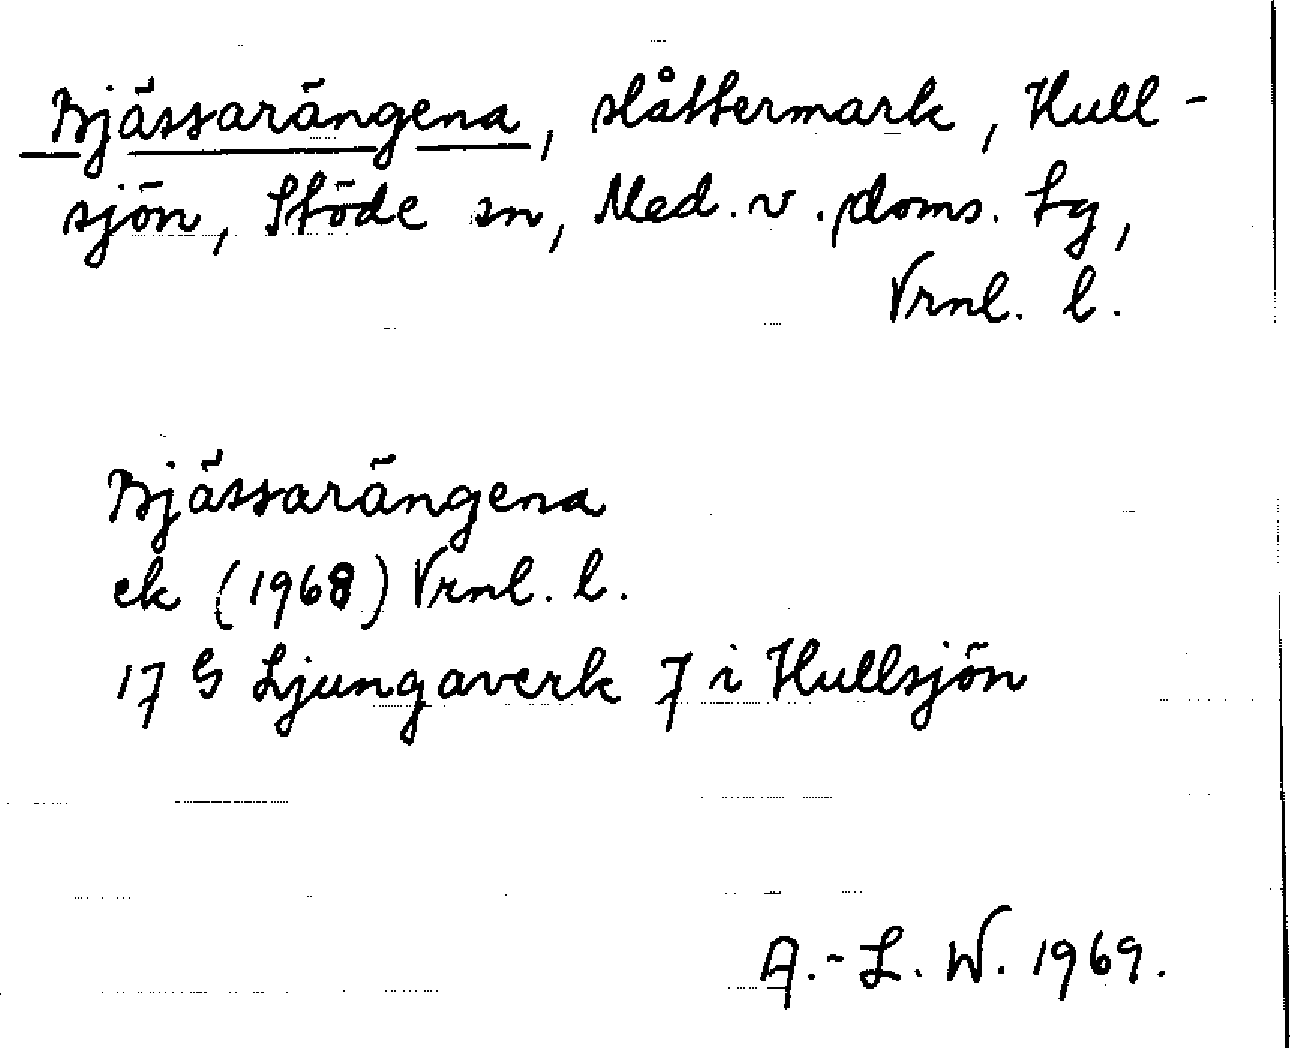 Bjässarängena, slåttermark, Hull-
sjön, Stöde sn, Med. v. doms. tg,
Vrnl. l.
Bjässarängena
ek (1968) Vrnl. l.
17 G Ljungaverk 7 i Hullsjön
A.-L. W. 1969.